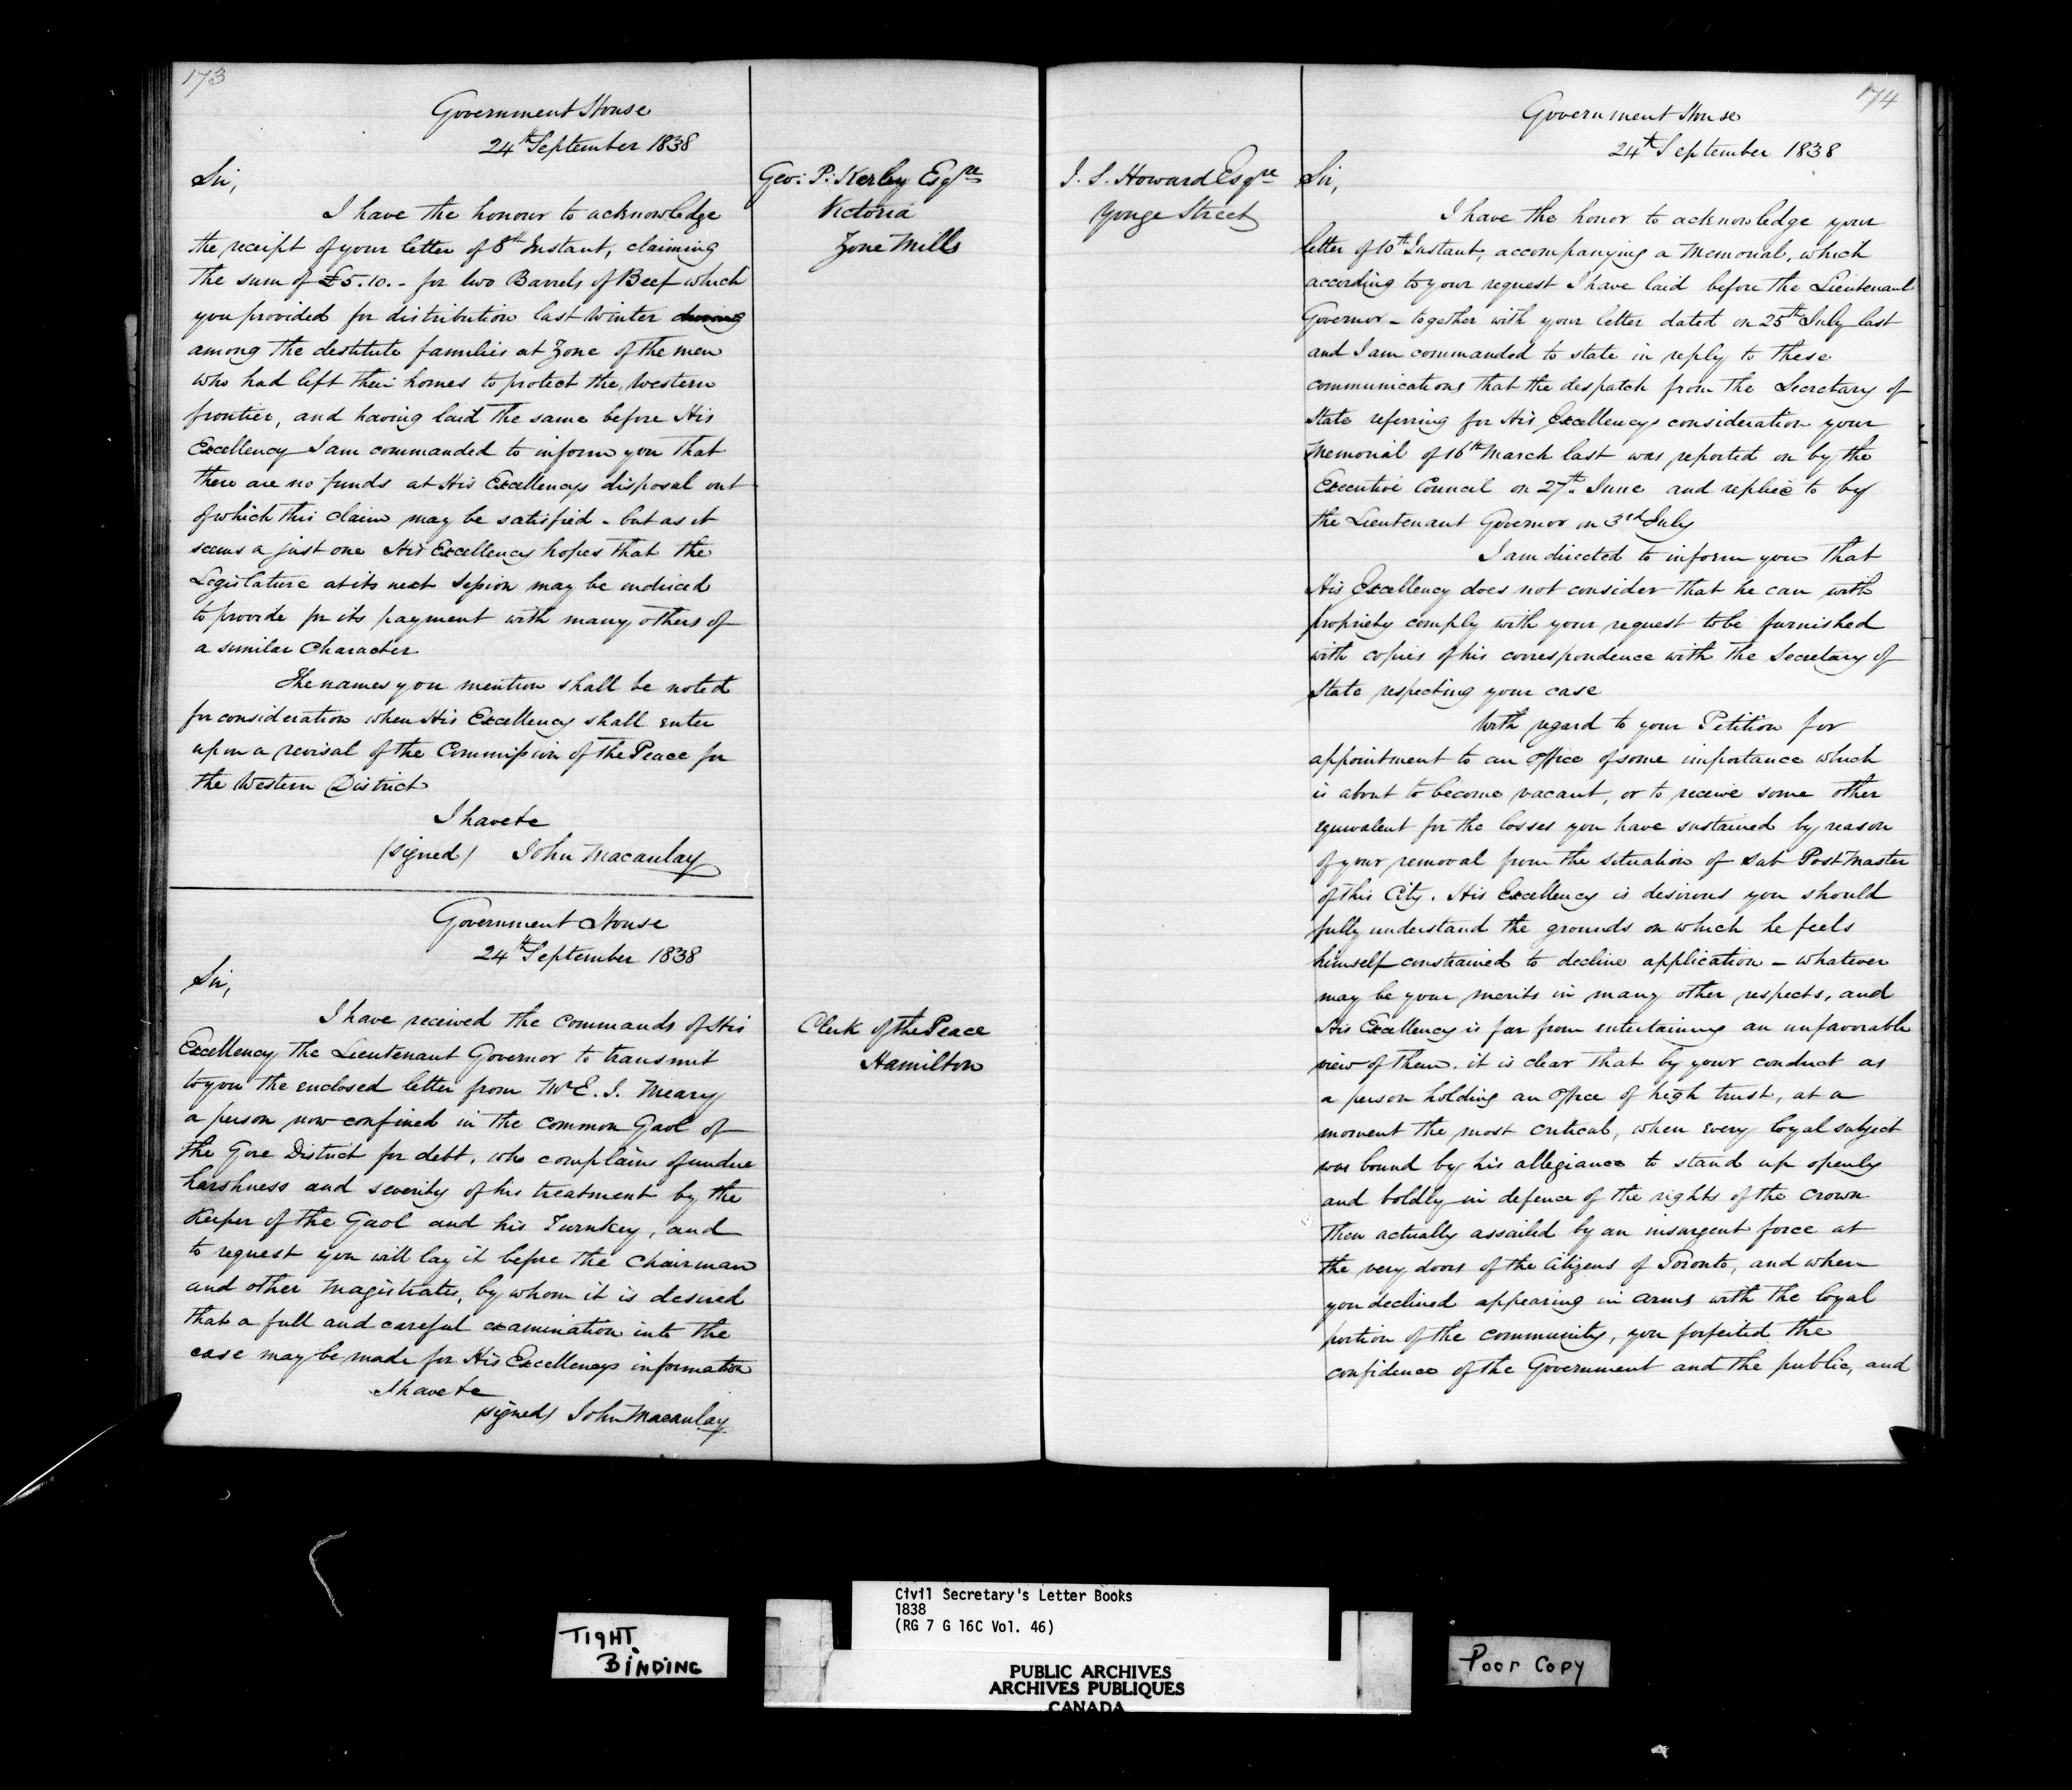 173
Government House
24th September 1838
Geo: P: Kerby Esqre
Victoria
Zone Mills
Sir,
I have the honour to acknowledge
the receipt of your letter of 8th Instant, claiming
the sum of £5.10.- for two Barrels of Beef which
you provided for distribution last Winter
among the destitute families at Zone of the men
who had left their homes to protect the Western
frontier, and having laid the same before His
Excellency I am commanded to inform you that
there are no funds at His Excellencys disposal out
of which this claim may be satisfied - but as it
seems a just one His Excellency hopes that the
Legislature at its next Session may be induced
to provide for its payment with many others of
a similar Character
The names you mention shall be noted
for consideration when His Excellency shall enter
upon a revisal of the Commission of the Peace for
the Western District
I have &c
(signed) John Macaulay
Government House
24th September 1838
Clerk of the Peace
Hamilton
Sir,
I have received the Commands of His
Excellency the Lieutenant Governor to transmit
to you the enclosed letter from Mr E. I. Meary
a person now confined in the Common Gaol of
the Gore District for debt, who complains of undue
harshness and severity of his treatment by the
Keeper of the Gaol and his Turnkey, and
to request you will lay it before the Chairman
and other Magistrates, by whom it is desired
that a full and careful examination into the
case may be made for His Excellencys information
I have &c
(signed) John Macaulay
174
Government House
24th September 1838
J. S. Howard Esqre
Yonge Street
Sir,
I have the honor to acknowledge your
letter of 10th Instant, accompanying a Memorial, which
according to your request I have laid before the Lieutenant
Governor - together with your letter dated on 25th July last
and I am commanded to state in reply to these
communications that the despatch from the Secretary of
State referring for His Excellencys consideration your
Memorial of 16th March last was reported on by the
Executive Council on 27th June and replied to by
the Lieutenant Governor on 3rd July
I am directed to inform you that
His Excellency does not consider that he can with
propriety comply with your request to be furnished
with copies of his correspondence with the Secretary of
State respecting your case
With regard to your Petition for
appointment to an office of some importance which
is about to become vacant, or to receive some other
equivalent for the losses you have sustained by reason
of your removal from the situation of Sub Post Master
of this City. His Excellency is desirous you should
fully understand the grounds on which he feels
himself constrained to decline application - whatever
may be your merits in many other respects, and
His Excellency is far from entertaining an unfavorable
view of them. it is clear that by your conduct as
a person holding an office of high trust, at a
moment the most critical, when every loyal subject
was bound by his allegiance to stand up openly
and boldly in defence of the rights of the Crown
then actually assailed by an insurgent force at
the very doors of the Citizens of Toronto, and when
you declined appearing in arms with the loyal
portion of the community, you forfeited the
confidence of the Government and the public, and
TIGHT BINDING
Civil Secretary's Letter Books
1838
(RG 7 G 16C Vol. 46)
PUBLIC ARCHIVES
ARCHIVES PUBLIQUES
CANADA
Poor Copy